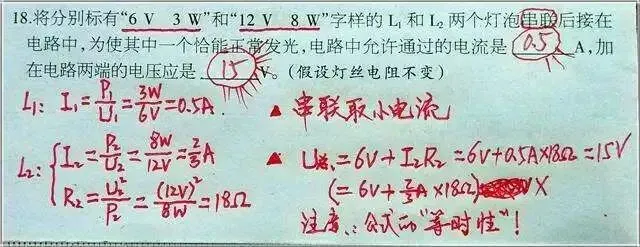 18.将分别标有“6 V 3 W”和“12 V 8 W”字样的 L₁ 和 L₂ 两个灯泡串联后接在
电路中,为使其中一个恰能正常发光,电路中允许通过的电流是 0.5 A,加
在电路两端的电压应是 15 V。(假设灯丝电阻不变)
L₁: I₁=P₁/U₁=3W/6V=0.5A
▲ 串联取小电流
L₂: { I₂=P₂/U₂=8W/12V=2/3A
R₂=U₂²/P₂=(12V)²/8W=18Ω
▲ U总=6V+I₂R₂=6V+0.5A×18Ω=15V
(=6V+2/3A×18Ω) X
注意:公式的“等时性”!